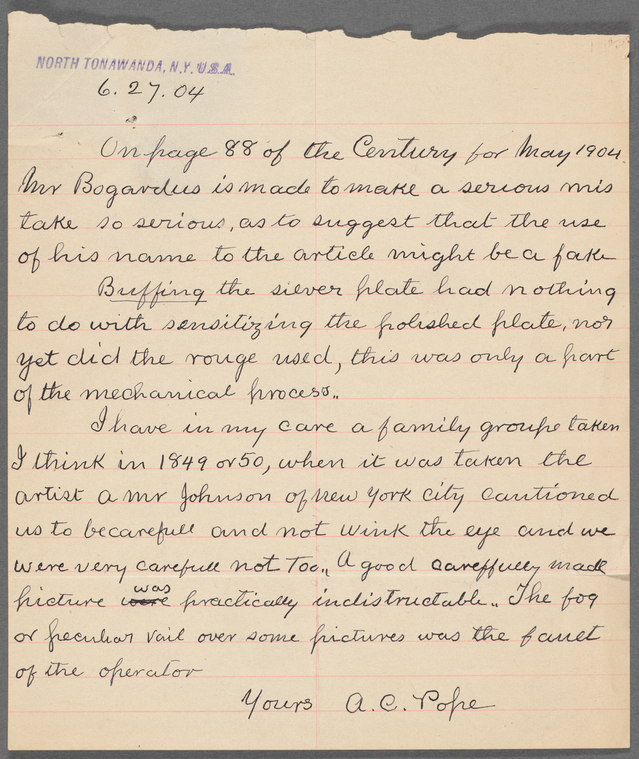 NORTH TONAWANDA, N.Y. U.S.A.
6.27.04
On page 88 of the Century for May 1904.
Mr Bogardus is made to make a serious mis
take so serious, as to suggest that the use
of his name to the article might be a fake
Buffing the silver plate had nothing
to do with sensitizing the polished plate, nor
yet did the rouge used, this was only a part
of the mechanical process..
I have in my care a family groupe taken
I think in 1849 or 50, when it was taken the
artist a Mr Johnson of New York City cautioned
us to becarefull and not wink the eye and we
were very carefull not Too.. A good careffully made
picture were was practically indistructable.. The fog
or peculiar vail over some pictures was the fault
of the operator
Yours A. C. Pope